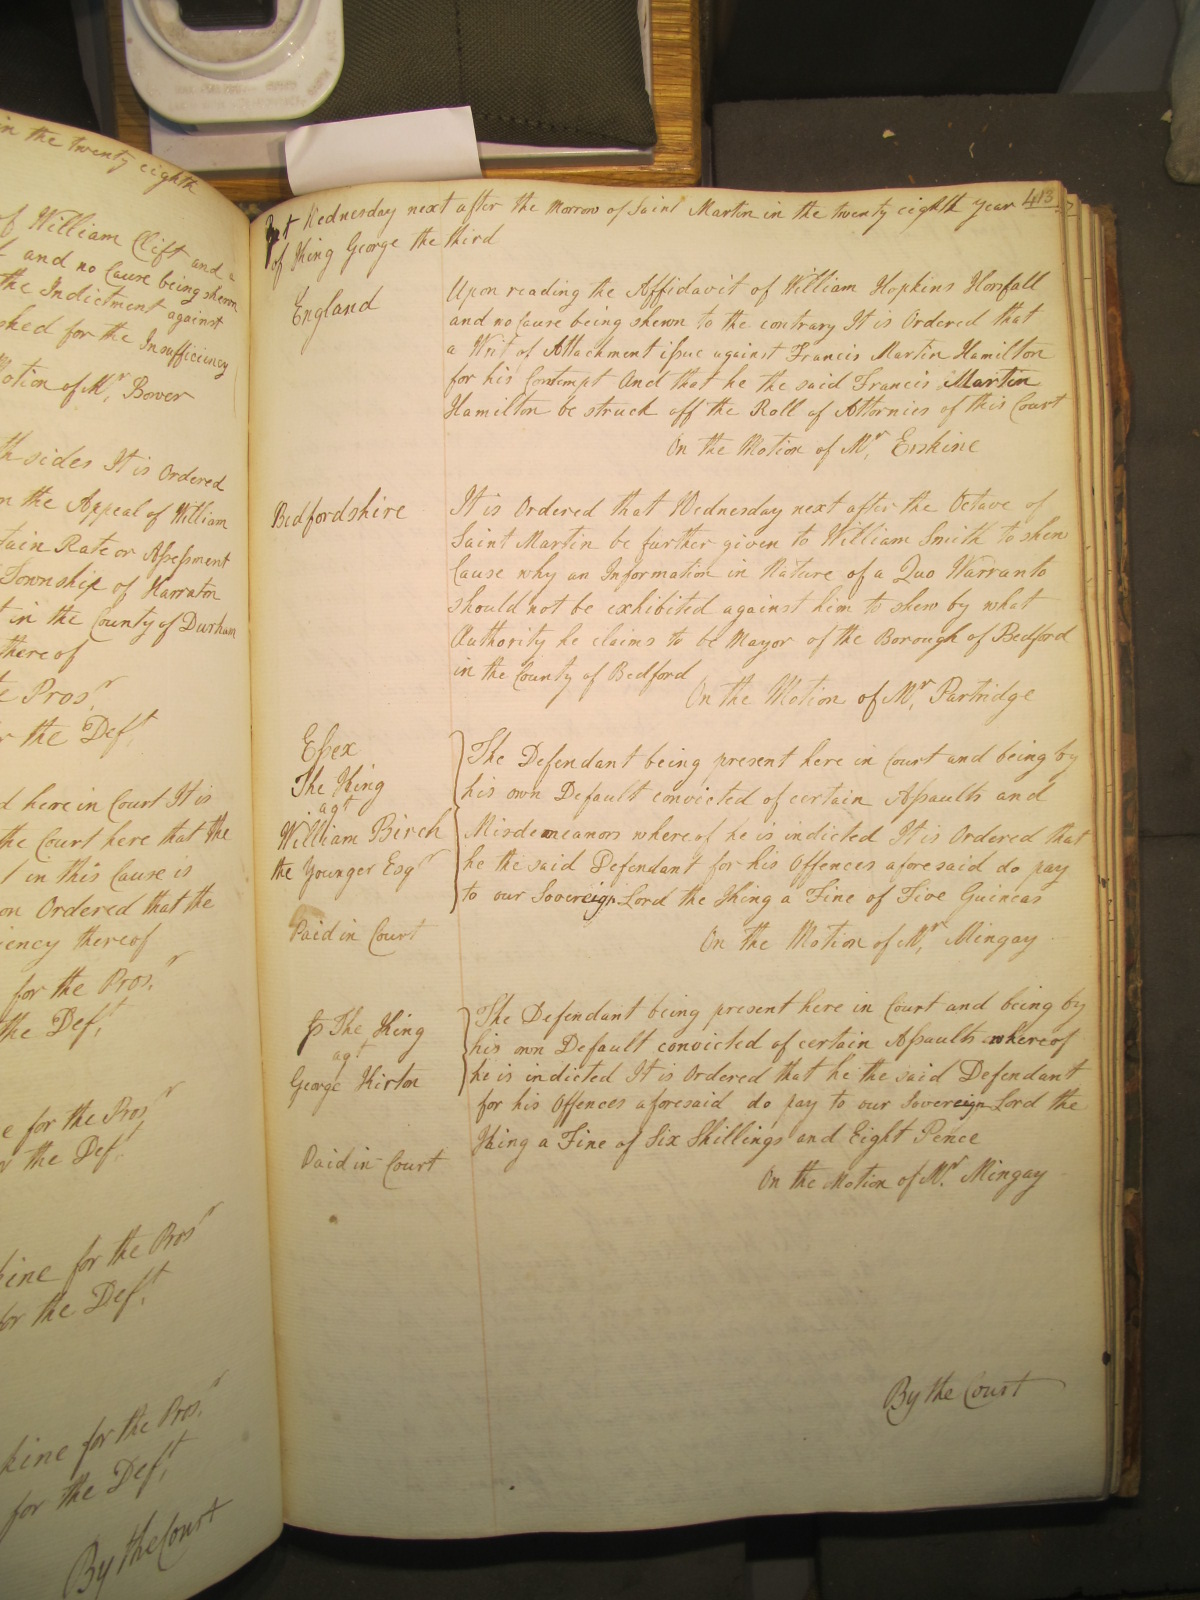 in the twenty eighth
of William Clift and a
and no Cause being shewn
the Indictment against
for the Insufficiency
Motion of Mr. Bower
th sides It is Ordered
the Appeal of William
Rate or Assessment
Township of Harraton
in the County of Durham
thereof
Prosr.
the Deft.
d here in Court It is
the Court here that the
in this Cause is
on Ordered that the
thereof
for the Prosr.
the Deft.
for the Prosr
the Deft.
for the Prosr
for the Deft.
for the Prosr.
for the Deft.
By the Court
413
Wednesday next after the Morrow of Saint Martin in the twenty eighth year
of King George the third
England
Upon reading the Affidavit of William Hopkins Horsfall
and no Cause being shewn to the contrary It is Ordered that
a Writ of Attachment issue against Francis Martin Hamilton
for his Contempt And that he the said Francis Martin
Hamilton be struck off the Roll of Attornies of this Court
On the Motion of Mr. Erskine
Bedfordshire
It is Ordered that Wednesday next after the Octave of
Saint Martin be further given to William Smith to shew
Cause why an Information in Nature of a Quo Warranto
should not be exhibited against him to shew by what
Authority he claims to be Mayor of the Borough of Bedford
in the County of Bedford
On the Motion of Mr. Partridge
Essex
The King
agt
William Birch
the Younger Esqr
Paid in Court
The Defendant being present here in Court and being by
his own Default convicted of certain Assaults and
Misdemeanors whereof he is indicted It is Ordered that
he the said Defendant for his Offences aforesaid do pay
to our Sovereign Lord the King a Fine of Five Guineas
On the Motion of Mr. Mingay
The King
agt
George Kirton
Paid in Court
The Defendant being present here in Court and being by
his own Default convicted of certain Assaults whereof
he is indicted It is Ordered that he the said Defendant
for his Offences aforesaid do pay to our Sovereign Lord the
King a Fine of Six Shillings and Eight Pence
On the Motion of Mr. Mingay
By the Court